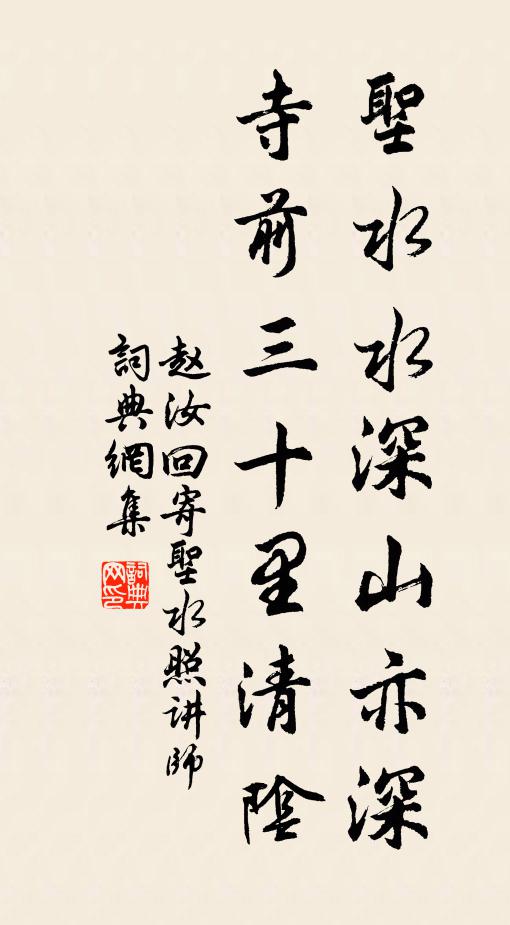 聖水水深山亦深
寺前三十里清陰
赵汝回寄聖水照讲师
詞典網集
詞典网印